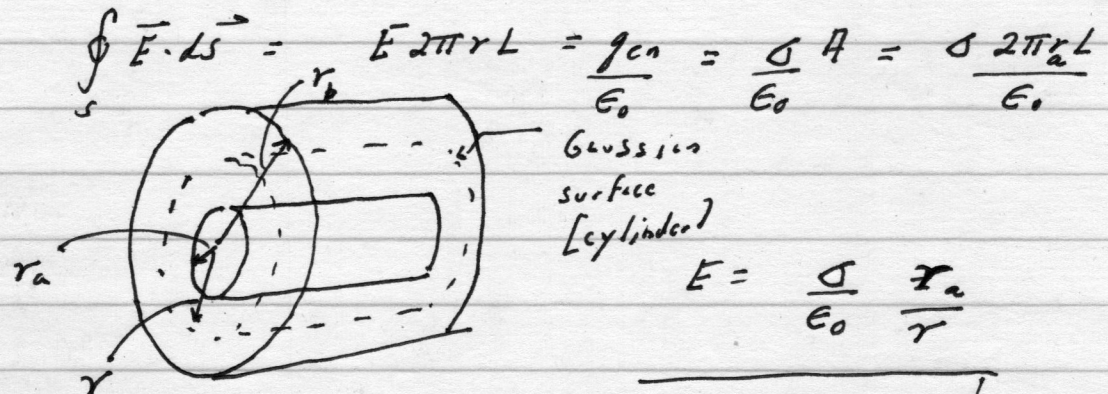 ∮ E⃗·ds⃗ = E 2πrL = qen/ϵ₀ = σ/ϵ₀ A = σ 2πrₐL/ϵ₀
S
r_b
Gaussian
surface
[cylinder]
rₐ
E = σ/ϵ₀ rₐ/r
r